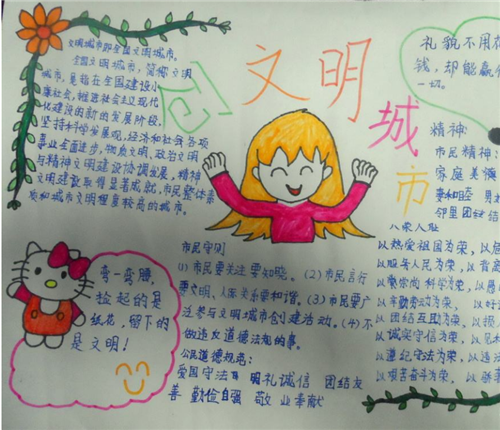 创文明城市
文明城市即全国文明城市。
全国文明城市，简称文明
城市，是指在全国建设小
康社会，推进社会主义现代
化建设的新的发展阶段，
坚持科学发展观，经济和社会各项
事业全面进步，物质文明，政治文明
与精神文明建设协调发展，精神
文明建设取得显著成就，市民整体素
质和城市文明程度较高的城市。
礼貌不用花
钱，却能赢
一切。
精神：
市民精神：
家庭美德
妻和睦
邻里团结
弯一弯腰，
捡起的是
纸花，留下的
是文明！
市民守则
(1)市民要关注要知晓。(2)市民言行
要文明，人际关系要和谐。(3)市民要广
泛参与文明城市创建活动。(4)不
做违反道德法规的事。
公民道德规范：
爱国守法 明礼诚信 团结友
善 勤俭自强 敬业奉献
八荣八耻
以热爱祖国为荣，以
以服务人民为荣，以背
以崇尚科学为荣，以愚
以辛勤劳动为荣，以好
以团结互助为荣，以损
以诚实守信为荣，以见
以遵纪守法为荣，以违
以艰苦奋斗为荣，以骄